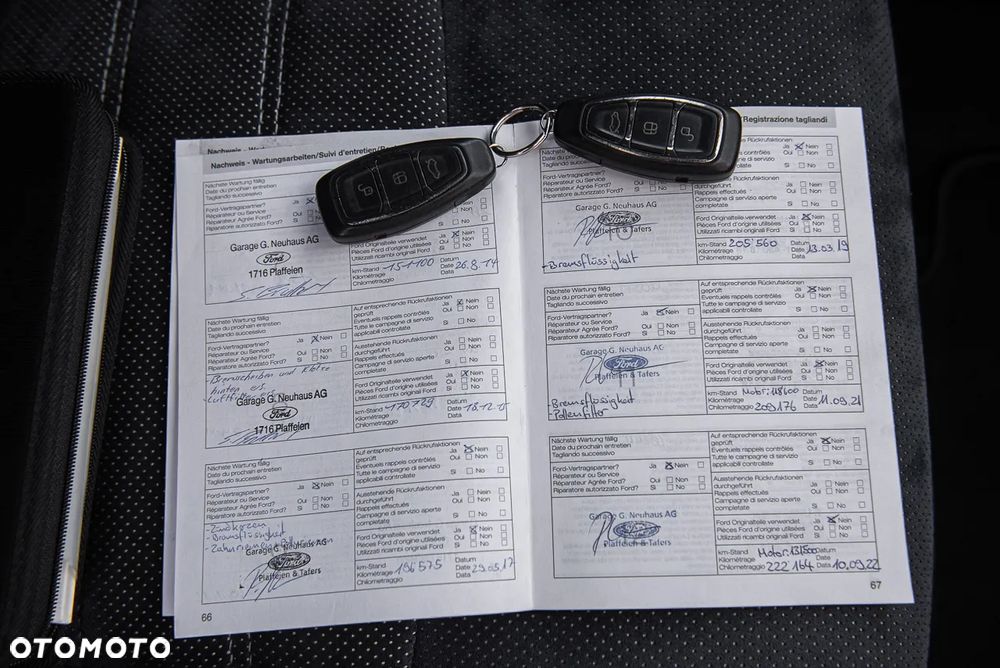 Nachweis - Wartungsarbeiten/Suivi d'entretien/
Nächste Wartung fällig
Date du prochain entretien
Tagliando successivo
Ford-Vertragspartner?
Réparateur ou Service
Réparateur Agrée Ford?
Ja
Oui
Si
Garage G. Neuhaus AG
Ford
1716 Plaffeien
Ford Originalteile verwendet Ja Nein
Pièces Ford d'origine utilisées Oui Non
Utilizzati ricambi originali Ford Si No
km-Stand 151100 Datum
Kilométrage Date 26.8.14
Chilometraggio Data
Nächste Wartung fällig
Date du prochain entretien
Tagliando successivo
Ford-Vertragspartner? Ja Nein
Réparateur ou Service
Réparateur Agrée Ford? Oui Non
Riparatore autorizzato Ford? Si No
Bremsscheiben und Klötze
hinten
Luftfilter
Garage G. Neuhaus AG
Ford
1716 Plaffeien
Auf entsprechende Rückrufaktionen
geprüft Ja Nein
Eventuels rappels contrôlés Oui Non
Tutte le campagne di servizio
applicabili controllate Si No
Ausstehende Rückrufaktionen
durchgeführt Ja Nein
Rappels effectués Oui Non
Campagne di servizio aperte
completate Si No
Ford Originalteile verwendet Ja Nein
Pièces Ford d'origine utilisées Oui Non
Utilizzati ricambi originali Ford Si No
km-Stand 170'729 Datum
Kilométrage Date
Chilometraggio Data
Nächste Wartung fällig
Date du prochain entretien
Tagliando successivo
Ford-Vertragspartner? Ja Nein
Réparateur ou Service
Réparateur Agrée Ford? Oui Non
Riparatore autorizzato Ford? Si No
- Zündkerzen
- Bremsflüssigkeit
Garage G. Neuhaus AG
Ford
Plaffeien & Tafers
Auf entsprechende Rückrufaktionen
geprüft Ja Nein
Eventuels rappels contrôlés Oui Non
Tutte le campagne di servizio
applicabili controllate Si No
Ausstehende Rückrufaktionen
durchgeführt Ja Nein
Rappels effectués Oui Non
Campagne di servizio aperte
completate Si No
Ford Originalteile verwendet Ja Nein
Pièces Ford d'origine utilisées Oui Non
Utilizzati ricambi originali Ford Si No
km-Stand 196'575 Datum
Kilométrage Date 29.05.17
Chilometraggio Data
66
/Registrazione tagliandi
Réparateur Agrée Ford?
Riparatore autorizzato Ford? Si No
Ford
- Bremsflüssigkeit
Ja Nein
Oui Non
Si No
durchgeführt Ja Nein
Rappels effectués Oui Non
Campagne di servizio aperte
completate Si No
Ford Originalteile verwendet Ja Nein
Pièces Ford d'origine utilisées Oui Non
Utilizzati ricambi originali Ford Si No
km-Stand 205'560 Datum
Kilométrage Date 13.03.19
Chilometraggio Data
Nächste Wartung fällig
Date du prochain entretien
Tagliando successivo
Ford-Vertragspartner? Ja Nein
Réparateur ou Service
Réparateur Agrée Ford? Oui Non
Riparatore autorizzato Ford? Si No
Garage G. Neuhaus AG
Ford
Plaffeien & Tafers
- Bremsflüssigkeit
- Pollenfilter
Auf entsprechende Rückrufaktionen
geprüft Ja Nein
Eventuels rappels contrôlés Oui Non
Tutte le campagne di servizio
applicabili controllate Si No
Ausstehende Rückrufaktionen
durchgeführt Ja Nein
Rappels effectués Oui Non
Campagne di servizio aperte
completate Si No
Ford Originalteile verwendet Ja Nein
Pièces Ford d'origine utilisées Oui Non
Utilizzati ricambi originali Ford Si No
km-Stand Motor: 118600 Datum
Kilométrage Date 11.09.21
Chilometraggio 209'176 Data
Nächste Wartung fällig
Date du prochain entretien
Tagliando successivo
Ford-Vertragspartner? Ja Nein
Réparateur ou Service
Réparateur Agrée Ford? Oui Non
Riparatore autorizzato Ford? Si No
Garage G. Neuhaus AG
Ford
Plaffeien & Tafers
Auf entsprechende Rückrufaktionen
geprüft Ja Nein
Eventuels rappels contrôlés Oui Non
Tutte le campagne di servizio
applicabili controllate Si No
Ausstehende Rückrufaktionen
durchgeführt Ja Nein
Rappels effectués Oui Non
Campagne di servizio aperte
completate Si No
Ford Originalteile verwendet Ja Nein
Pièces Ford d'origine utilisées Oui Non
Utilizzati ricambi originali Ford Si No
km-Stand Motor: 131500 Datum
Kilométrage Date
Chilometraggio 222'164 Data 10.09.22
67
OTOMOTO